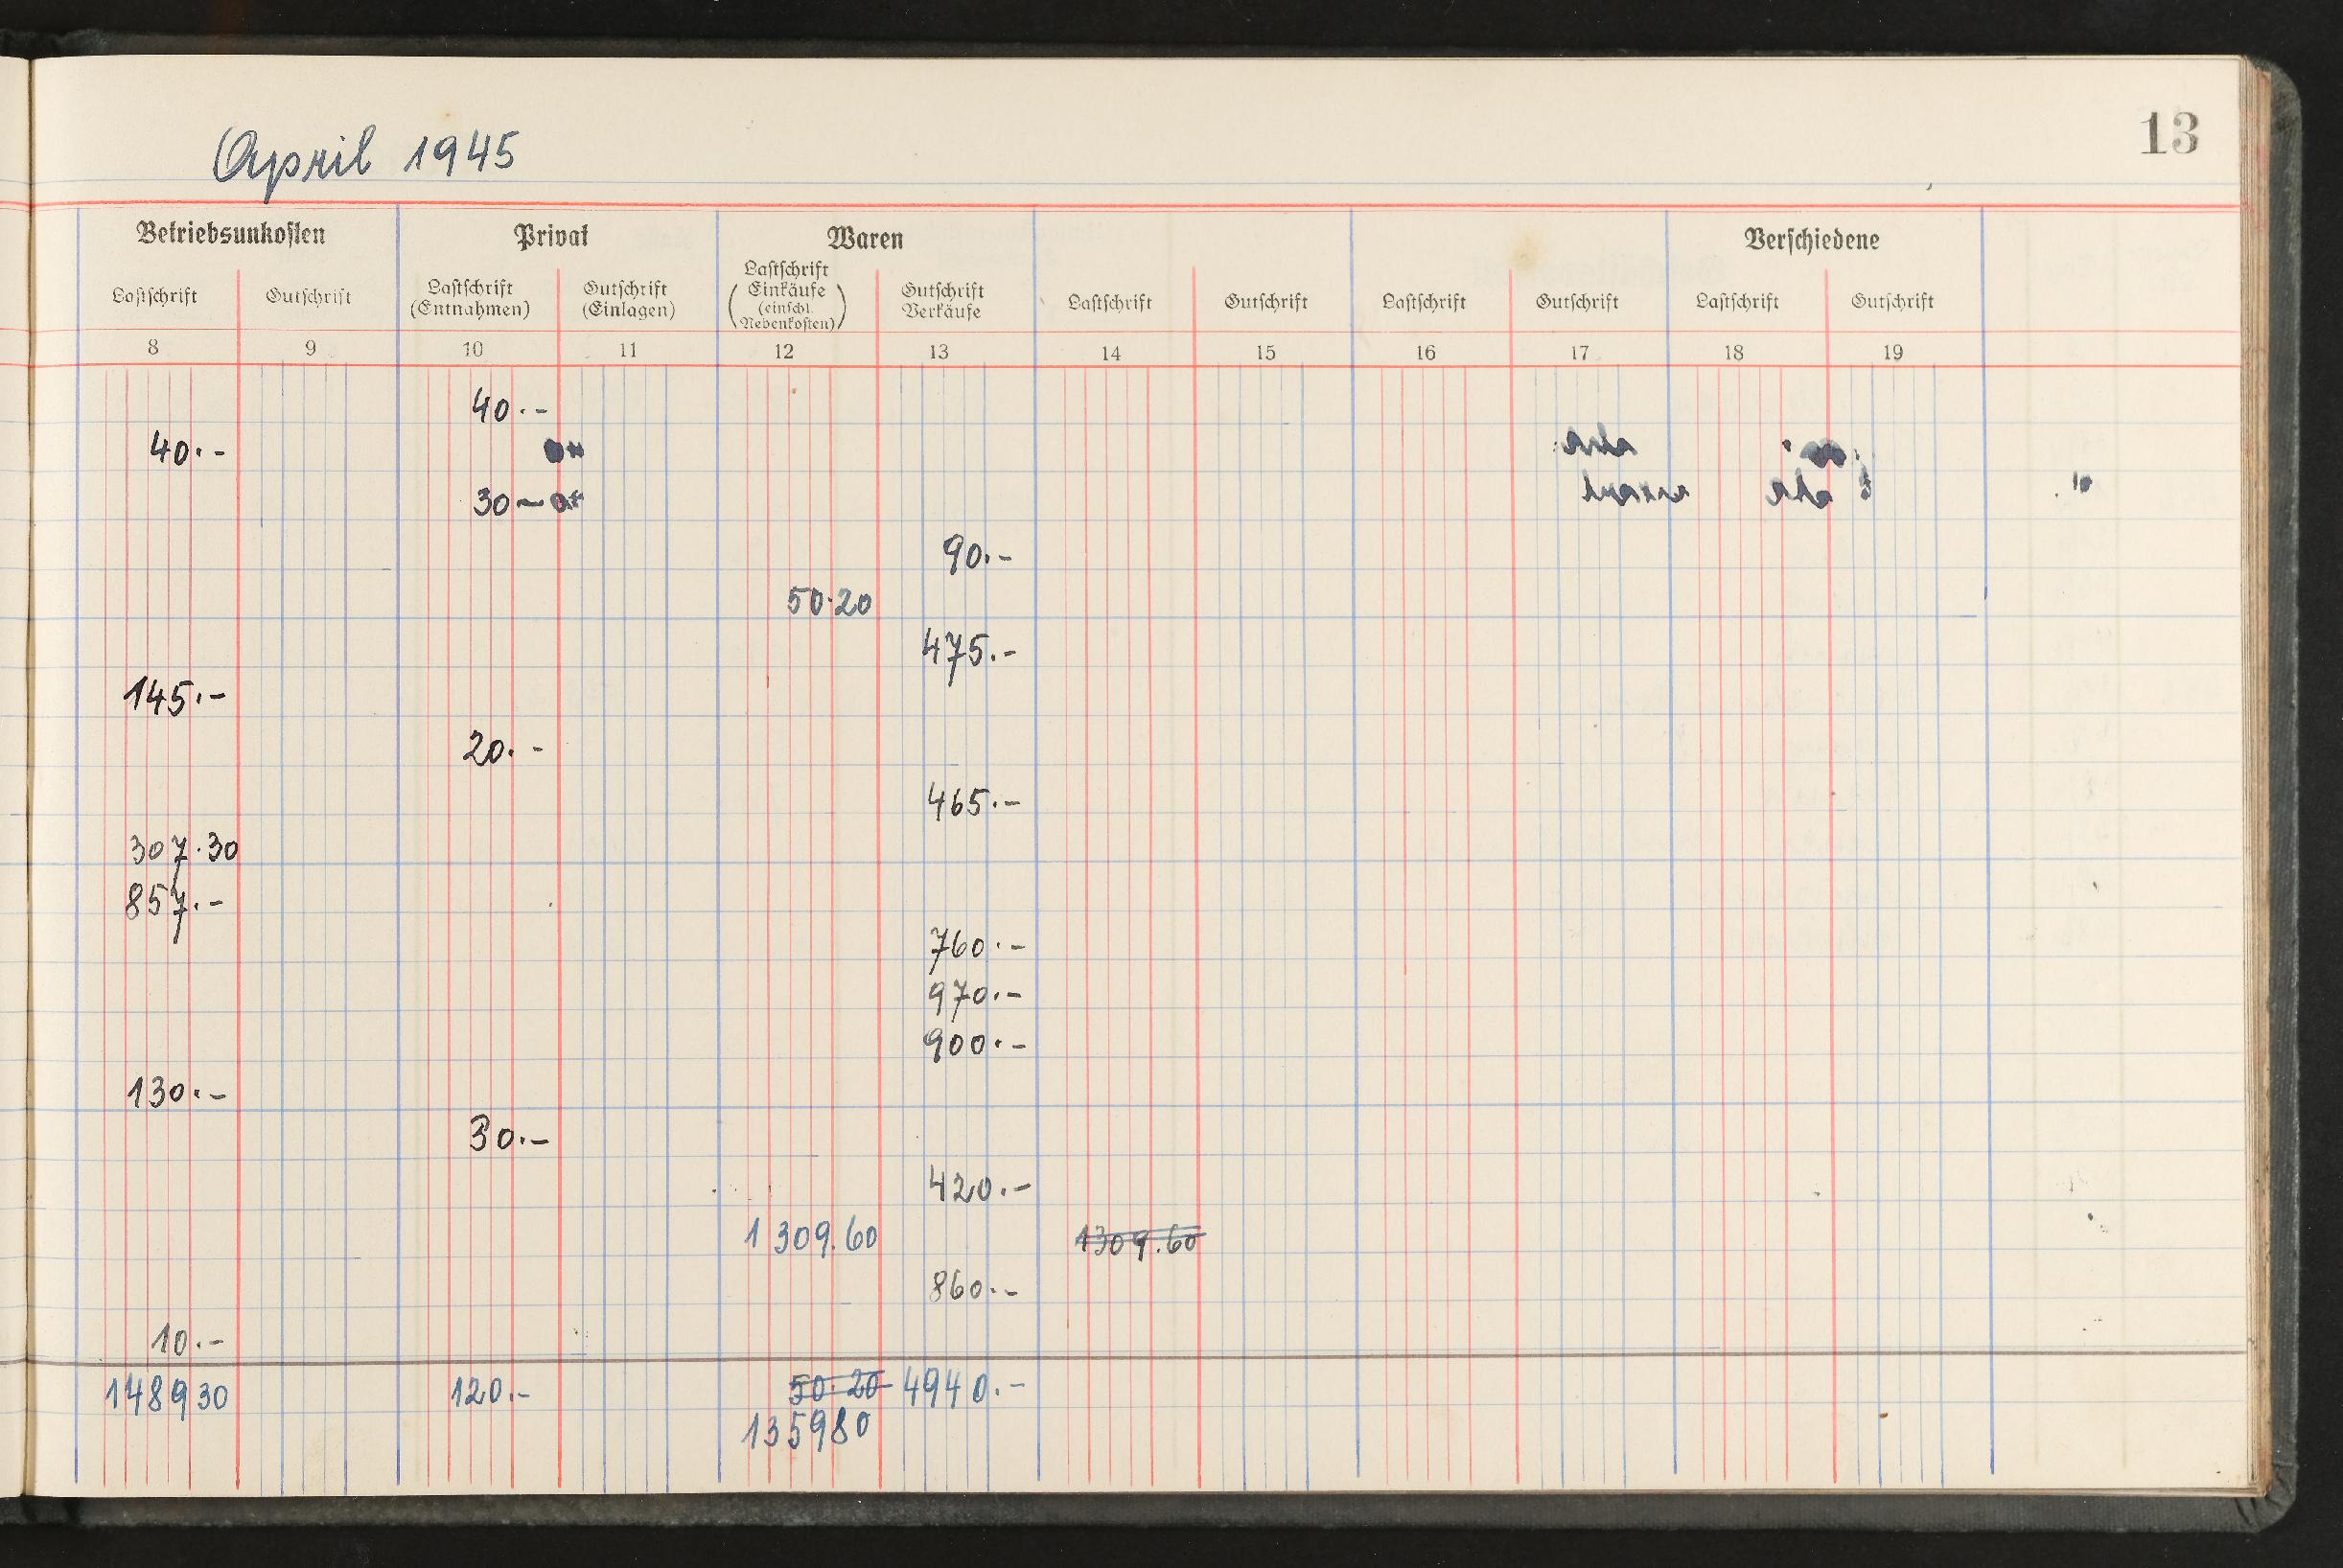 13
April 1945
Betriebsunkosten Privat Waren Verschiedene
Lastschrift Gutschrift Lastschrift (Entnahmen) Gutschrift (Einlagen) Lastschrift Einkäufe (einschl. Nebenkosten) Gutschrift Verkäufe Lastschrift Gutschrift Lastschrift Gutschrift Lastschrift Gutschrift
8 9 10 11 12 13 14 15 16 17 18 19
40.-
40.-
30-
90.-
50.20
475.-
145.-
20.-
465.-
307.30
857.-
760.-
970.-
900.-
130.-
30.-
420.-
1309.60 1309.60
860.-
10.-
148930 120.- 50.20 4940.-
135980